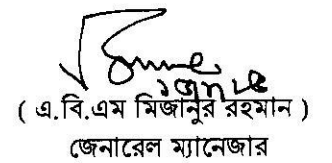 ( এ.বি.এম মিজানুর রহমান )
জেনারেল ম্যানেজার